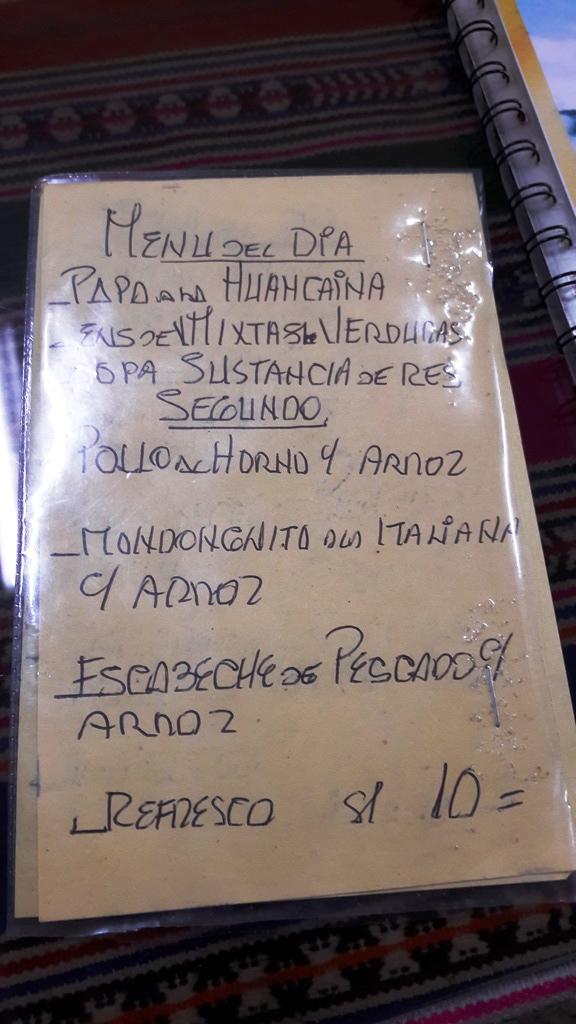 MENU DEL DIA
- PAPA A LA HUANCAINA
- ENS DE MIXTAS DE VERDURAS
SOPA SUSTANCIA DE RES
SEGUNDO
POLLO AL HORNO C/ ARROZ
- MONDONGUITO A LA ITALIANA
C/ ARROZ
- ESCABECHE DE PESCADO C/
ARROZ
- REFRESCO S/ 10 =